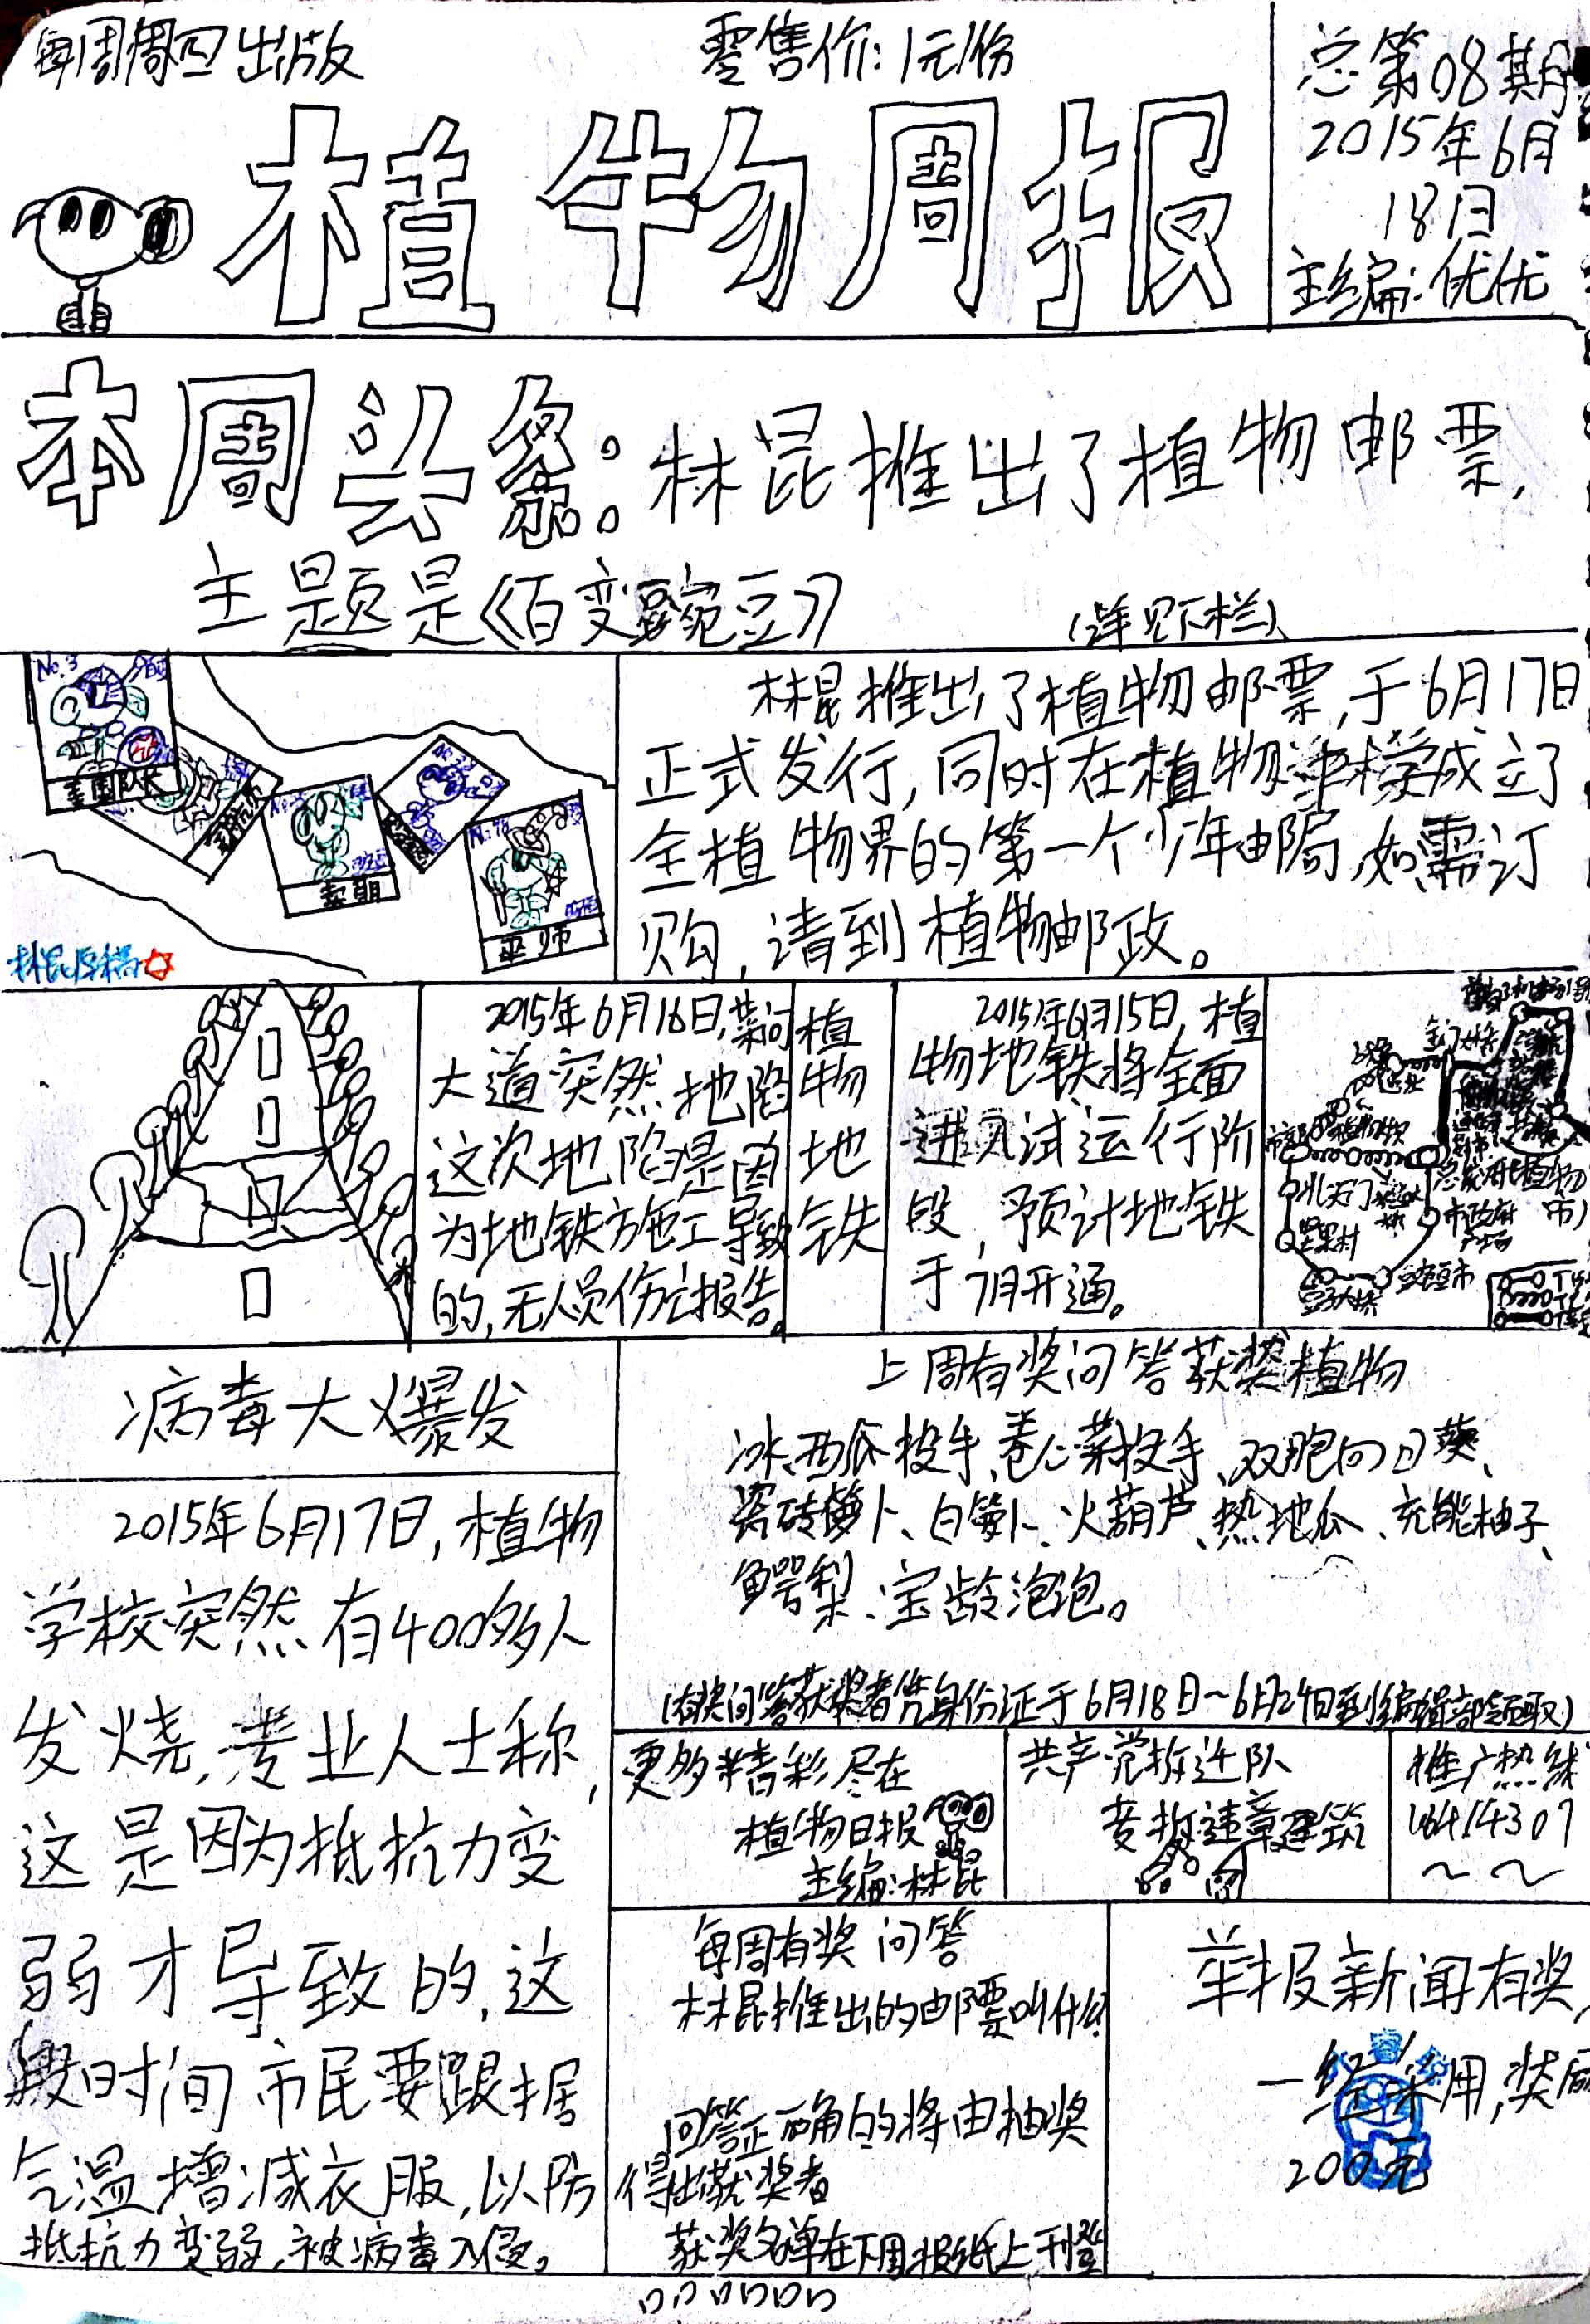 每周周四出版
零售价:1元/份
植物周报
总第08期
2015年6月
18日
主编:优优
本周头条:林昆推出了植物邮票,
主题是《百变豌豆》
(详见下栏)
No.3
美国队长
卖萌
巫师
林昆原稿
林昆推出了植物邮票,于6月17日
正式发行,同时在植物学成立了
全植物界的第一个少年邮局,如需订
购,请到植物邮政。
2015年6月16日,菜问
大道突然地陷
这次地陷是因
为地铁方施工导致
的,无人员伤亡报告。
植
物
地
铁
2015年6月15日,植
物地铁将全面
进入试运行阶
段,预计地铁
于7月开通。
北天门
坚果村
市政府
广场
豌豆市
病毒大爆发
2015年6月17日,植物
学校突然有400多人
发烧,专业人士称,
这是因为抵抗力变
弱才导致的,这
段时间市民要跟据
气温增减衣服,以防
抵抗力变弱,被病毒入侵。
上周有奖问答获奖植物
冰西瓜投手、卷心菜投手、双胞向日葵、
瓷砖萝卜、白萝卜、火葫芦、热地瓜、充能柚子、
鳄梨、宝龄泡泡。
(有奖问答获奖者凭身份证于6月18日~6月24日到编辑部领取)
更多精彩尽在
植物日报
主编:林昆
共产党拆迁队
专拆违章建筑
推广热线
每周有奖问答
林昆推出的邮票叫什么
回答正确的将由抽奖
得出获奖者
获奖名单在下周报纸上刊登
举报新闻有奖,
一经采用,奖励
200元